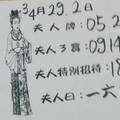 34月29.2日
夫人牌:05.2
夫人3赏:0914
夫人特别招待:18
夫人曰:一六